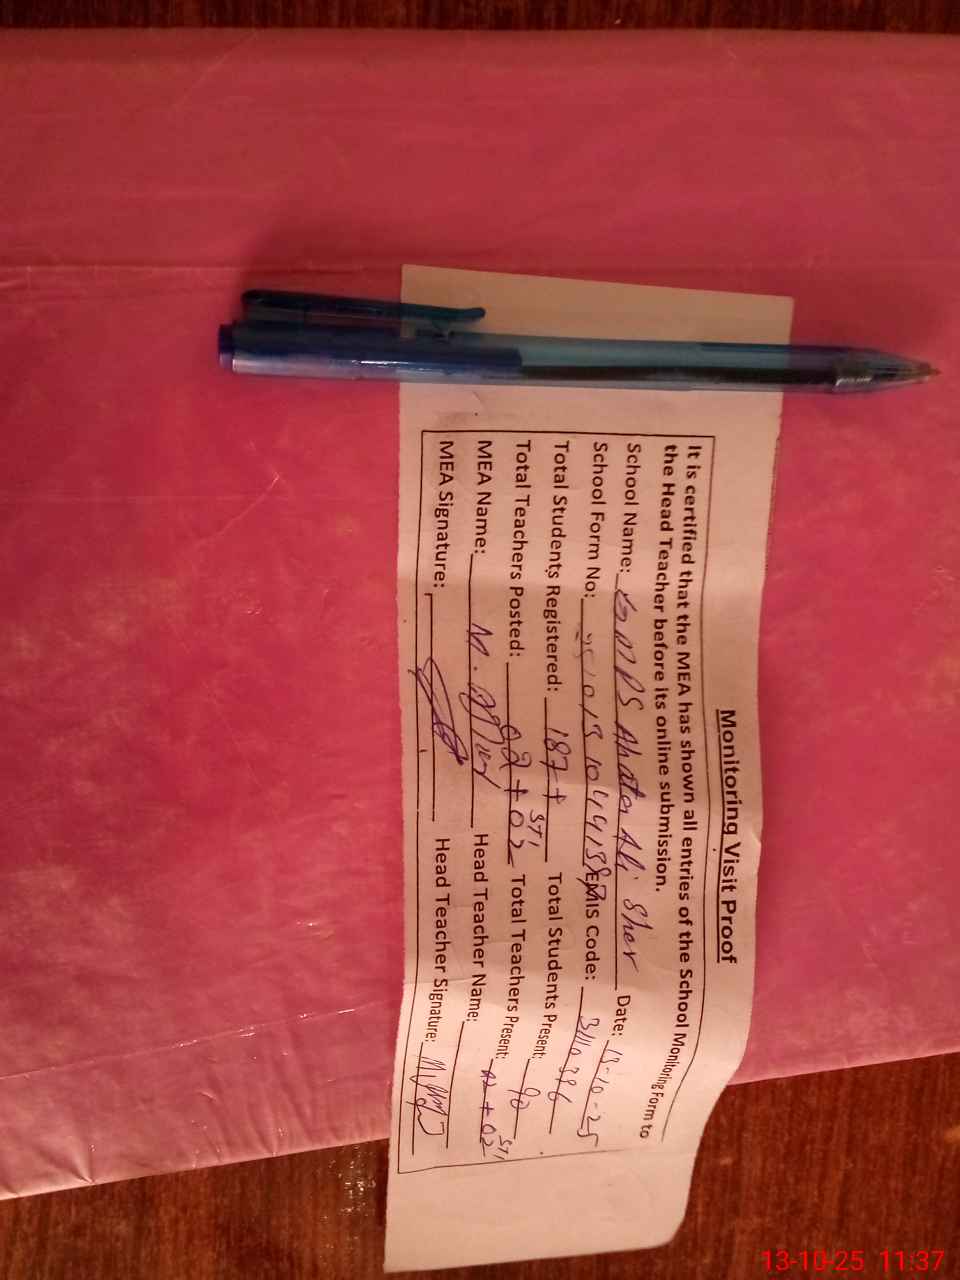 Monitoring Visit Proof
It is certified that the MEA has shown all entries of the School Monitoring Form to
the Head Teacher before its online submission.
School Name: GMPS Ahata Ali Sher Date: 13-10-25
School Form No: EMIS Code:
Total Students Registered: 187+ Total Students Present: 90
Total Teachers Posted: 02+02 STI Total Teachers Present: 02+02 STI
MEA Name: M. Head Teacher Name:
MEA Signature: Head Teacher Signature:
13-10-25 11:37